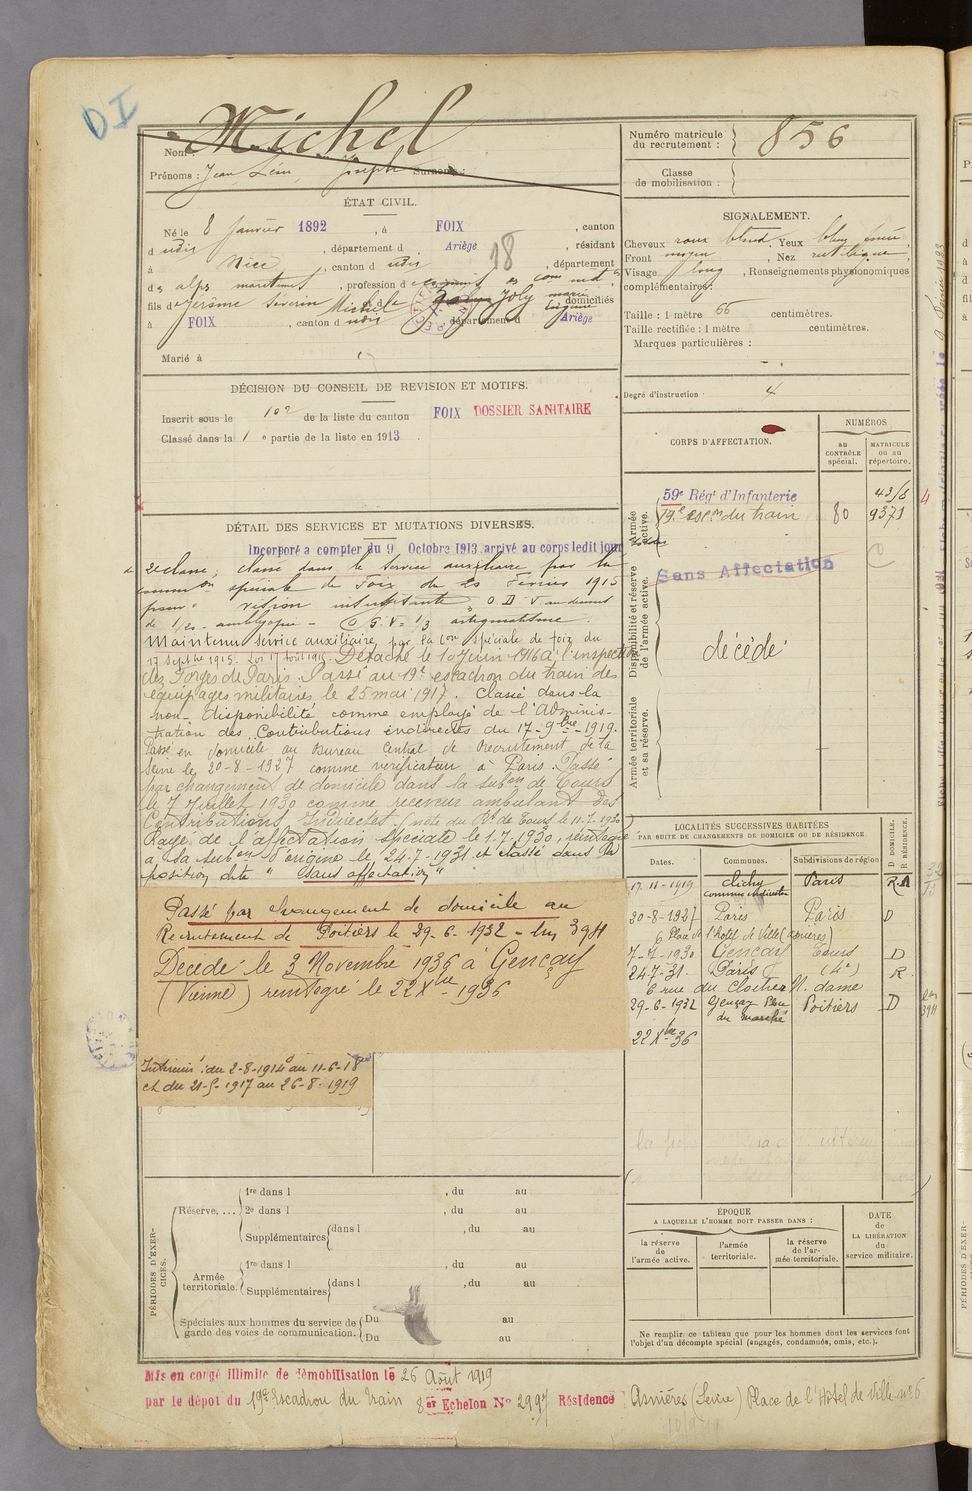 DI
Nom : Michel
Prénoms : Jean, Léon, Joseph Surnoms :
Numéro matricule du recrutement : 856
Classe de mobilisation :
ÉTAT CIVIL.
Né le 8 Janvier 1892, à FOIX, canton
d udis, département d Ariège, résidant
à Nice, canton d udis 18, département
des alpes maritimes, profession d
fils de Jérôme Séverin Michel et Joly marie domiciliés
à FOIX, canton d udis, département d Ariège
Marié à
SIGNALEMENT.
Cheveux roux blond, Yeux bleu
Front moyen, Nez rectiligne,
Visage long, Renseignements physionomiques
complémentaires :
Taille : 1 mètre 66 centimètres.
Taille rectifiée : 1 mètre centimètres.
Marques particulières :
Degré d'instruction : 4
DÉCISION DU CONSEIL DE REVISION ET MOTIFS.
Inscrit sous le 102 de la liste du canton FOIX DOSSIER SANITAIRE
Classé dans la 1e partie de la liste en 1913.
CORPS D'AFFECTATION.
NUMÉROS
au CONTRÔLE spécial.
MATRICULE ou au répertoire.
Armée active.
59e Régt d'Infanterie
19e escon du train 80 9371
Disponibilité et réserve de l'armée active.
Sans Affectation
décédé
Armée territoriale et sa réserve.
DÉTAIL DES SERVICES ET MUTATIONS DIVERSES.
Incorporé à compter du 9 Octobre 1913 arrivé au corps ledit jour
2e classe, classé dans le service auxiliaire par la
comm on spéciale de Foix du 20 Février 1915
pour vision insuffisante O D
de 1/20 amblyopie - O G V = 1/3 astigmatisme.
Maintenu service auxiliaire par la Con spéciale de foix du
17 Septbre 1915. Loi 17 Août 1915. Détaché le 10 Juin 1916 à l'inspection
des Forges de Paris. Passé au 19e escadron du train des
équipages militaires le 25 mai 1917. Classé dans la
non-disponibilité comme employé de l'Adminis-
tration des Contributions indirectes du 17-9bre-1919.
Passé en domicile au Bureau Central de Recrutement de la
Seine le 20-8-1927 comme vérificateur à Paris. Passé
par changement de domicile dans la subon de Tours
le 7 Juillet 1930 comme receveur ambulant des
Contributions Indirectes. (note du Rt de Tours le 11-7-1930)
Rayé de l'affectation spéciale le 1-7-1930, réintégré
à sa subon d'origine le 24-7-1931 et classé dans la
position dite "sans affectation"
Passé par changement de domicile au
Recrutement de Poitiers le 29-6-1932 - 3911
Décédé le 3 Novembre 1936 à Gençay
(Vienne) réintégré le 22 Xbre 1936
Intérieur : du 2-8-1914 au 11-6-18
et du 21-5-1917 au 26-8-1919
LOCALITÉS SUCCESSIVES HABITÉES
PAR SUITE DE CHANGEMENTS DE DOMICILE OU DE RÉSIDENCE.
Dates. Communes. Subdivisions de région. D DOMICILE. R RÉSIDENCE.
17-11-1919 Clichy Paris R
20-8-1927 Paris Paris D
6 Place de l'hôtel de Ville (Asnières)
7-7-1930 Gençay Tours D
24-7-31. Paris (4e) R.
6 rue du Cloitre N. dame
29-6-1932 Gençay Place du marché Poitiers D
22 Xbre 36
PÉRIODES D'EXERCICES.
Réserve, .... 1re dans l , du au
2e dans l , du au
Supplémentaires dans l , du au
Armée territoriale. 1re dans l , du au
Supplémentaires dans l , du au
Spéciales aux hommes du service de Du au
garde des voies de communication. Du au
ÉPOQUE
A LAQUELLE L'HOMME DOIT PASSER DANS :
la réserve de l'armée active.
l'armée territoriale.
la réserve de l'armée territoriale.
DATE de LA LIBÉRATION du service militaire.
Ne remplir ce tableau que pour les hommes dont les services font
l'objet d'un décompte spécial (engagés, condamnés, omis, etc.).
Mis en congé illimité de démobilisation le 26 Août 1919
par le dépôt du 19e Escadron du Train 8er Echelon No 2997 Résidence : Asnières (Seine) Place de l'Hôtel de Ville no 6